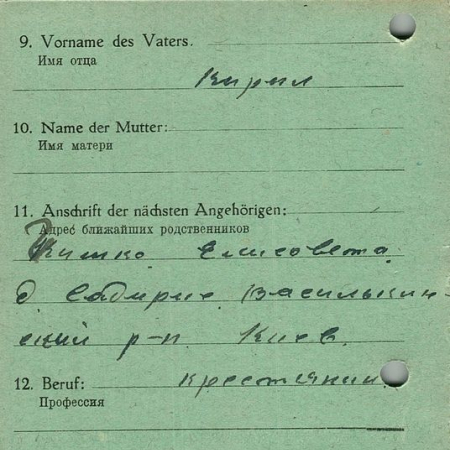 9. Vorname des Vaters.
Имя отца
Кирил
10. Name der Mutter:
Имя матери
11. Anschrift der nächsten Angehörigen:
Адрес ближайших родственников
Елисовета
д. Василькин-
ский р-н Киев.
12. Beruf: крестянин
Профессия